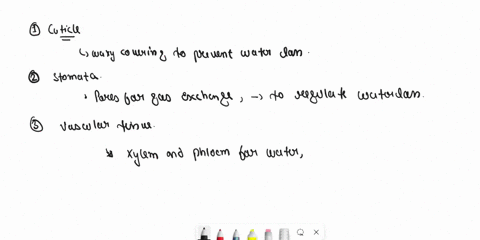 ① Cuticle
↳ waxy covering to prevent water loss.
② Stomata.
• Pores for gas exchange, → to regulate water loss.
③ Vascular tissue.
* Xylem and phloem for water,